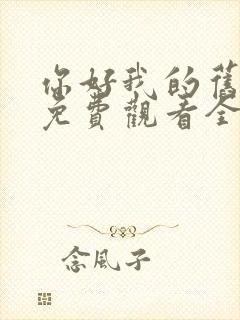 你好我的舊
免費觀看全
念風子